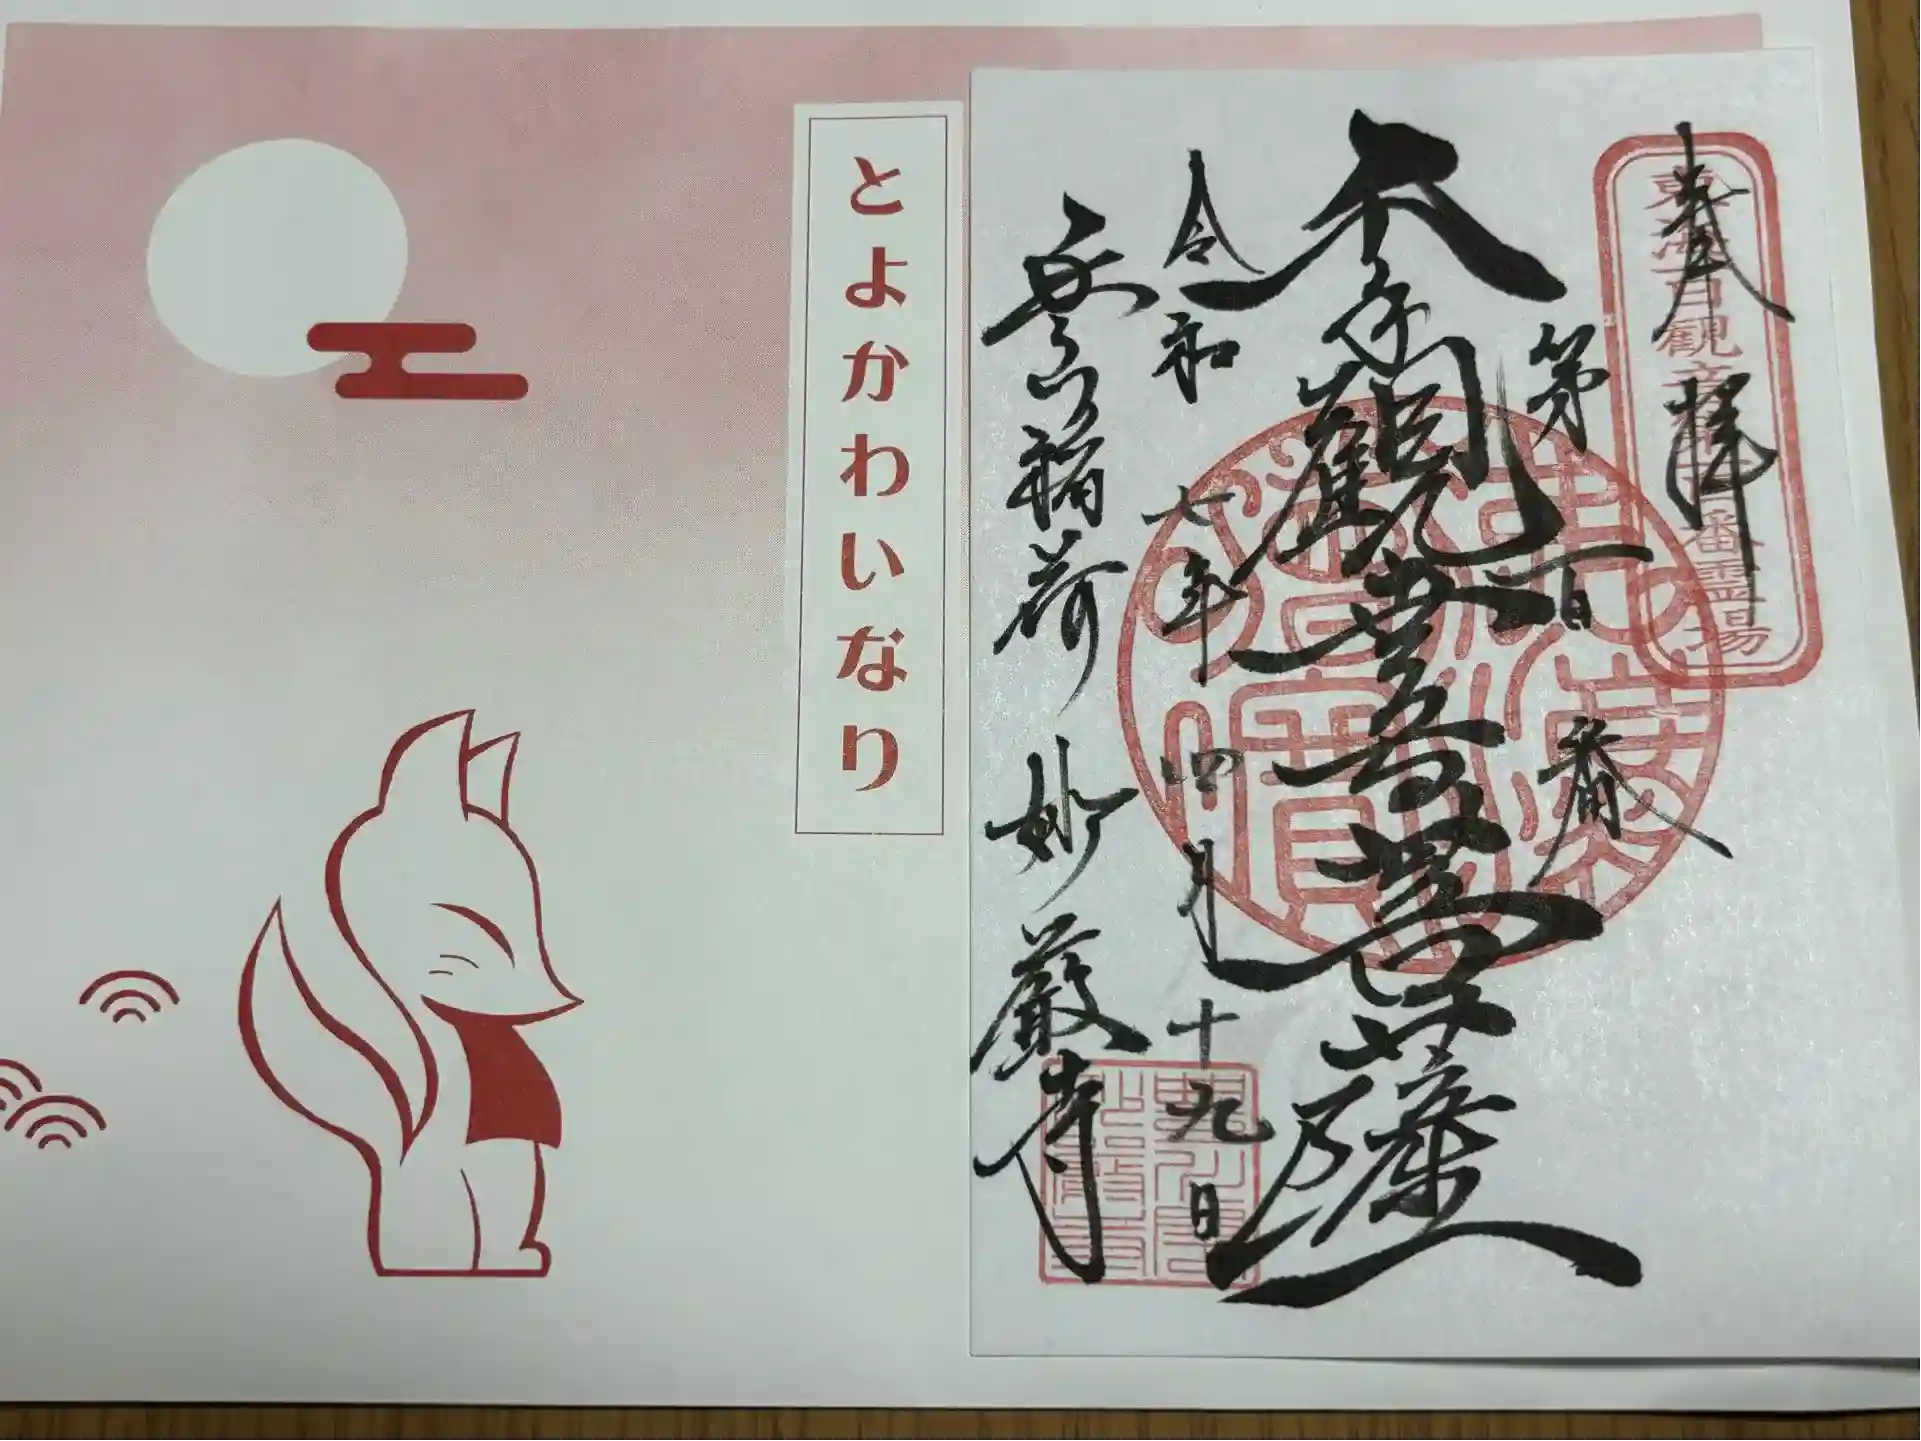 奉拝
東海百観音第百番霊場
第百番
千手觀世音菩薩
令和七年四月十九日
豊川稲荷 妙厳寺
とよかわいなり